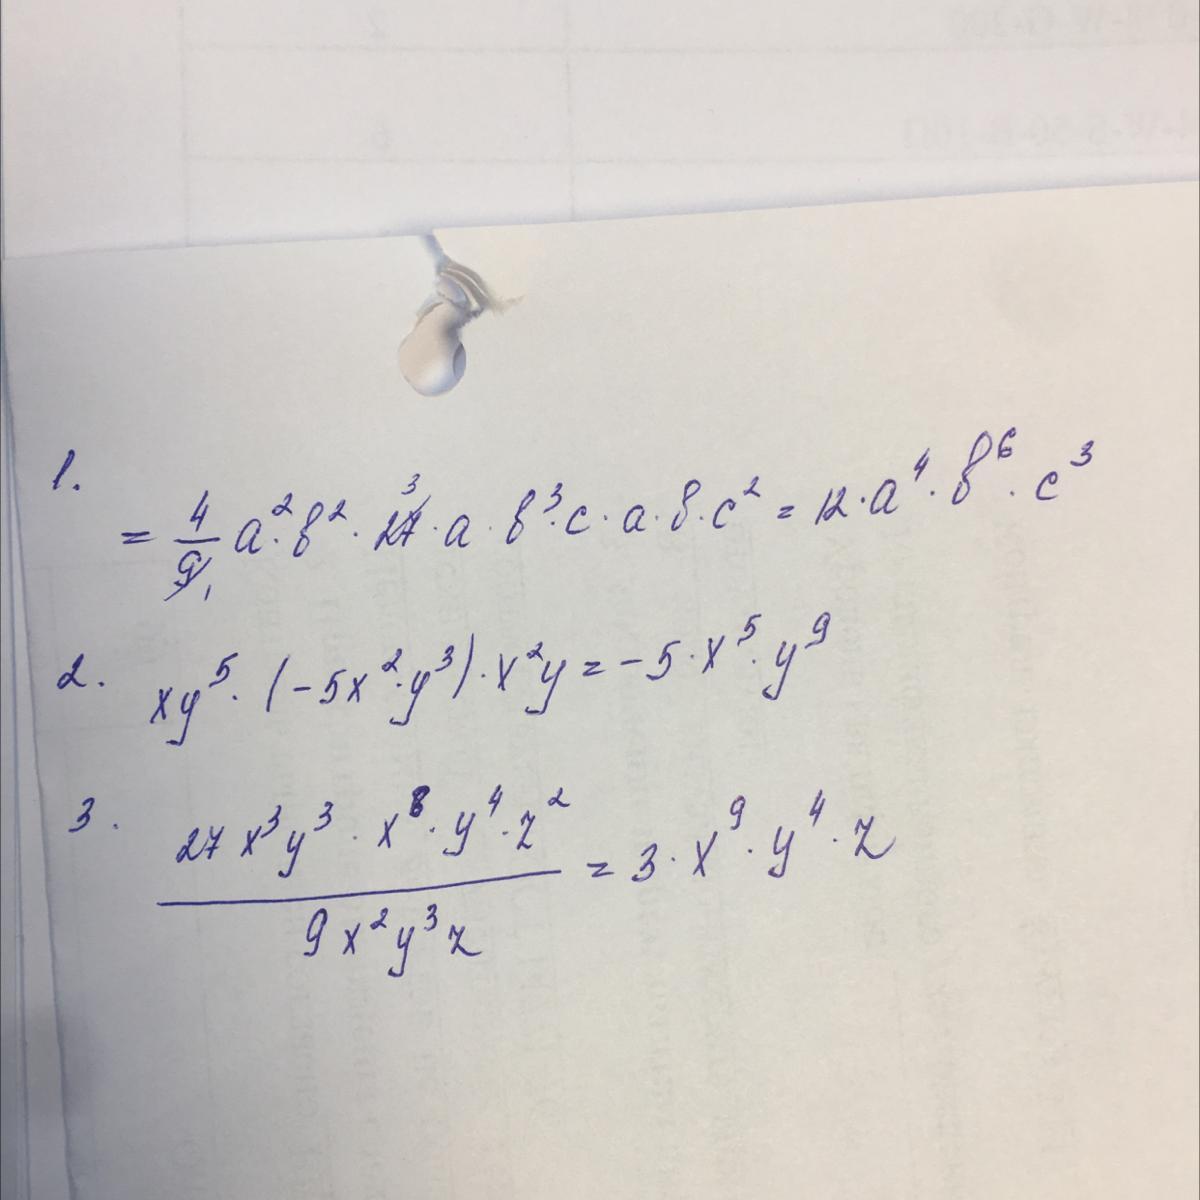 1.
= 4/9 a²·b²·27·a·b³·c·a·b·c² = 12·a⁴·b⁶·c³
2. xy⁵·(-5x²·y³)·x²y = -5·x⁵·y⁹
3. 27x³y³·x⁸·y⁴·z² / 9x²y³z = 3·x⁹·y⁴·z